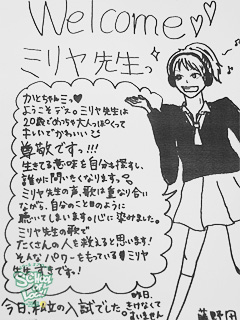 Welcome♡♥
ミリヤ先生っ
かとちゃんミっ♥
ようこそデス。ミリヤ先生は
20歳でめちゃ大人っぽくって
キレイでかわいい
尊敬ですっ!!!
生きてる意味を自分も探すし、
誰かに問いきくなります。
ミリヤ先生の声、歌は重なり合い
ながら、自分のこと目のように
聴いてしまいます。心に染めました。
ミリヤ先生の歌で
たくさんの人を救えると思います!
そんなパワーをもっている♯ミリヤ
先生すきです!
今日、私立の入試でした。
昨日、
きけなくて
すいません